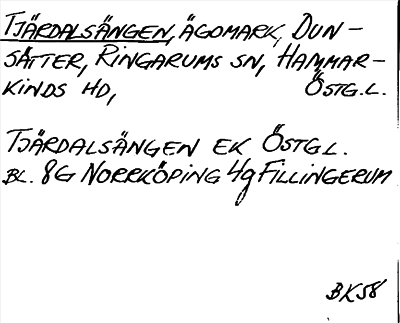 TJÄRDALSÄNGEN, ÄGOMARK, DUN-
SÄTTER, RINGARUMS SN, HAMMAR-
KINDS HD, ÖSTG.L.
TJÄRDALSÄNGEN EK ÖSTGL.
BL. 8G NORRKÖPING 4g FILLINGERUM
BK58